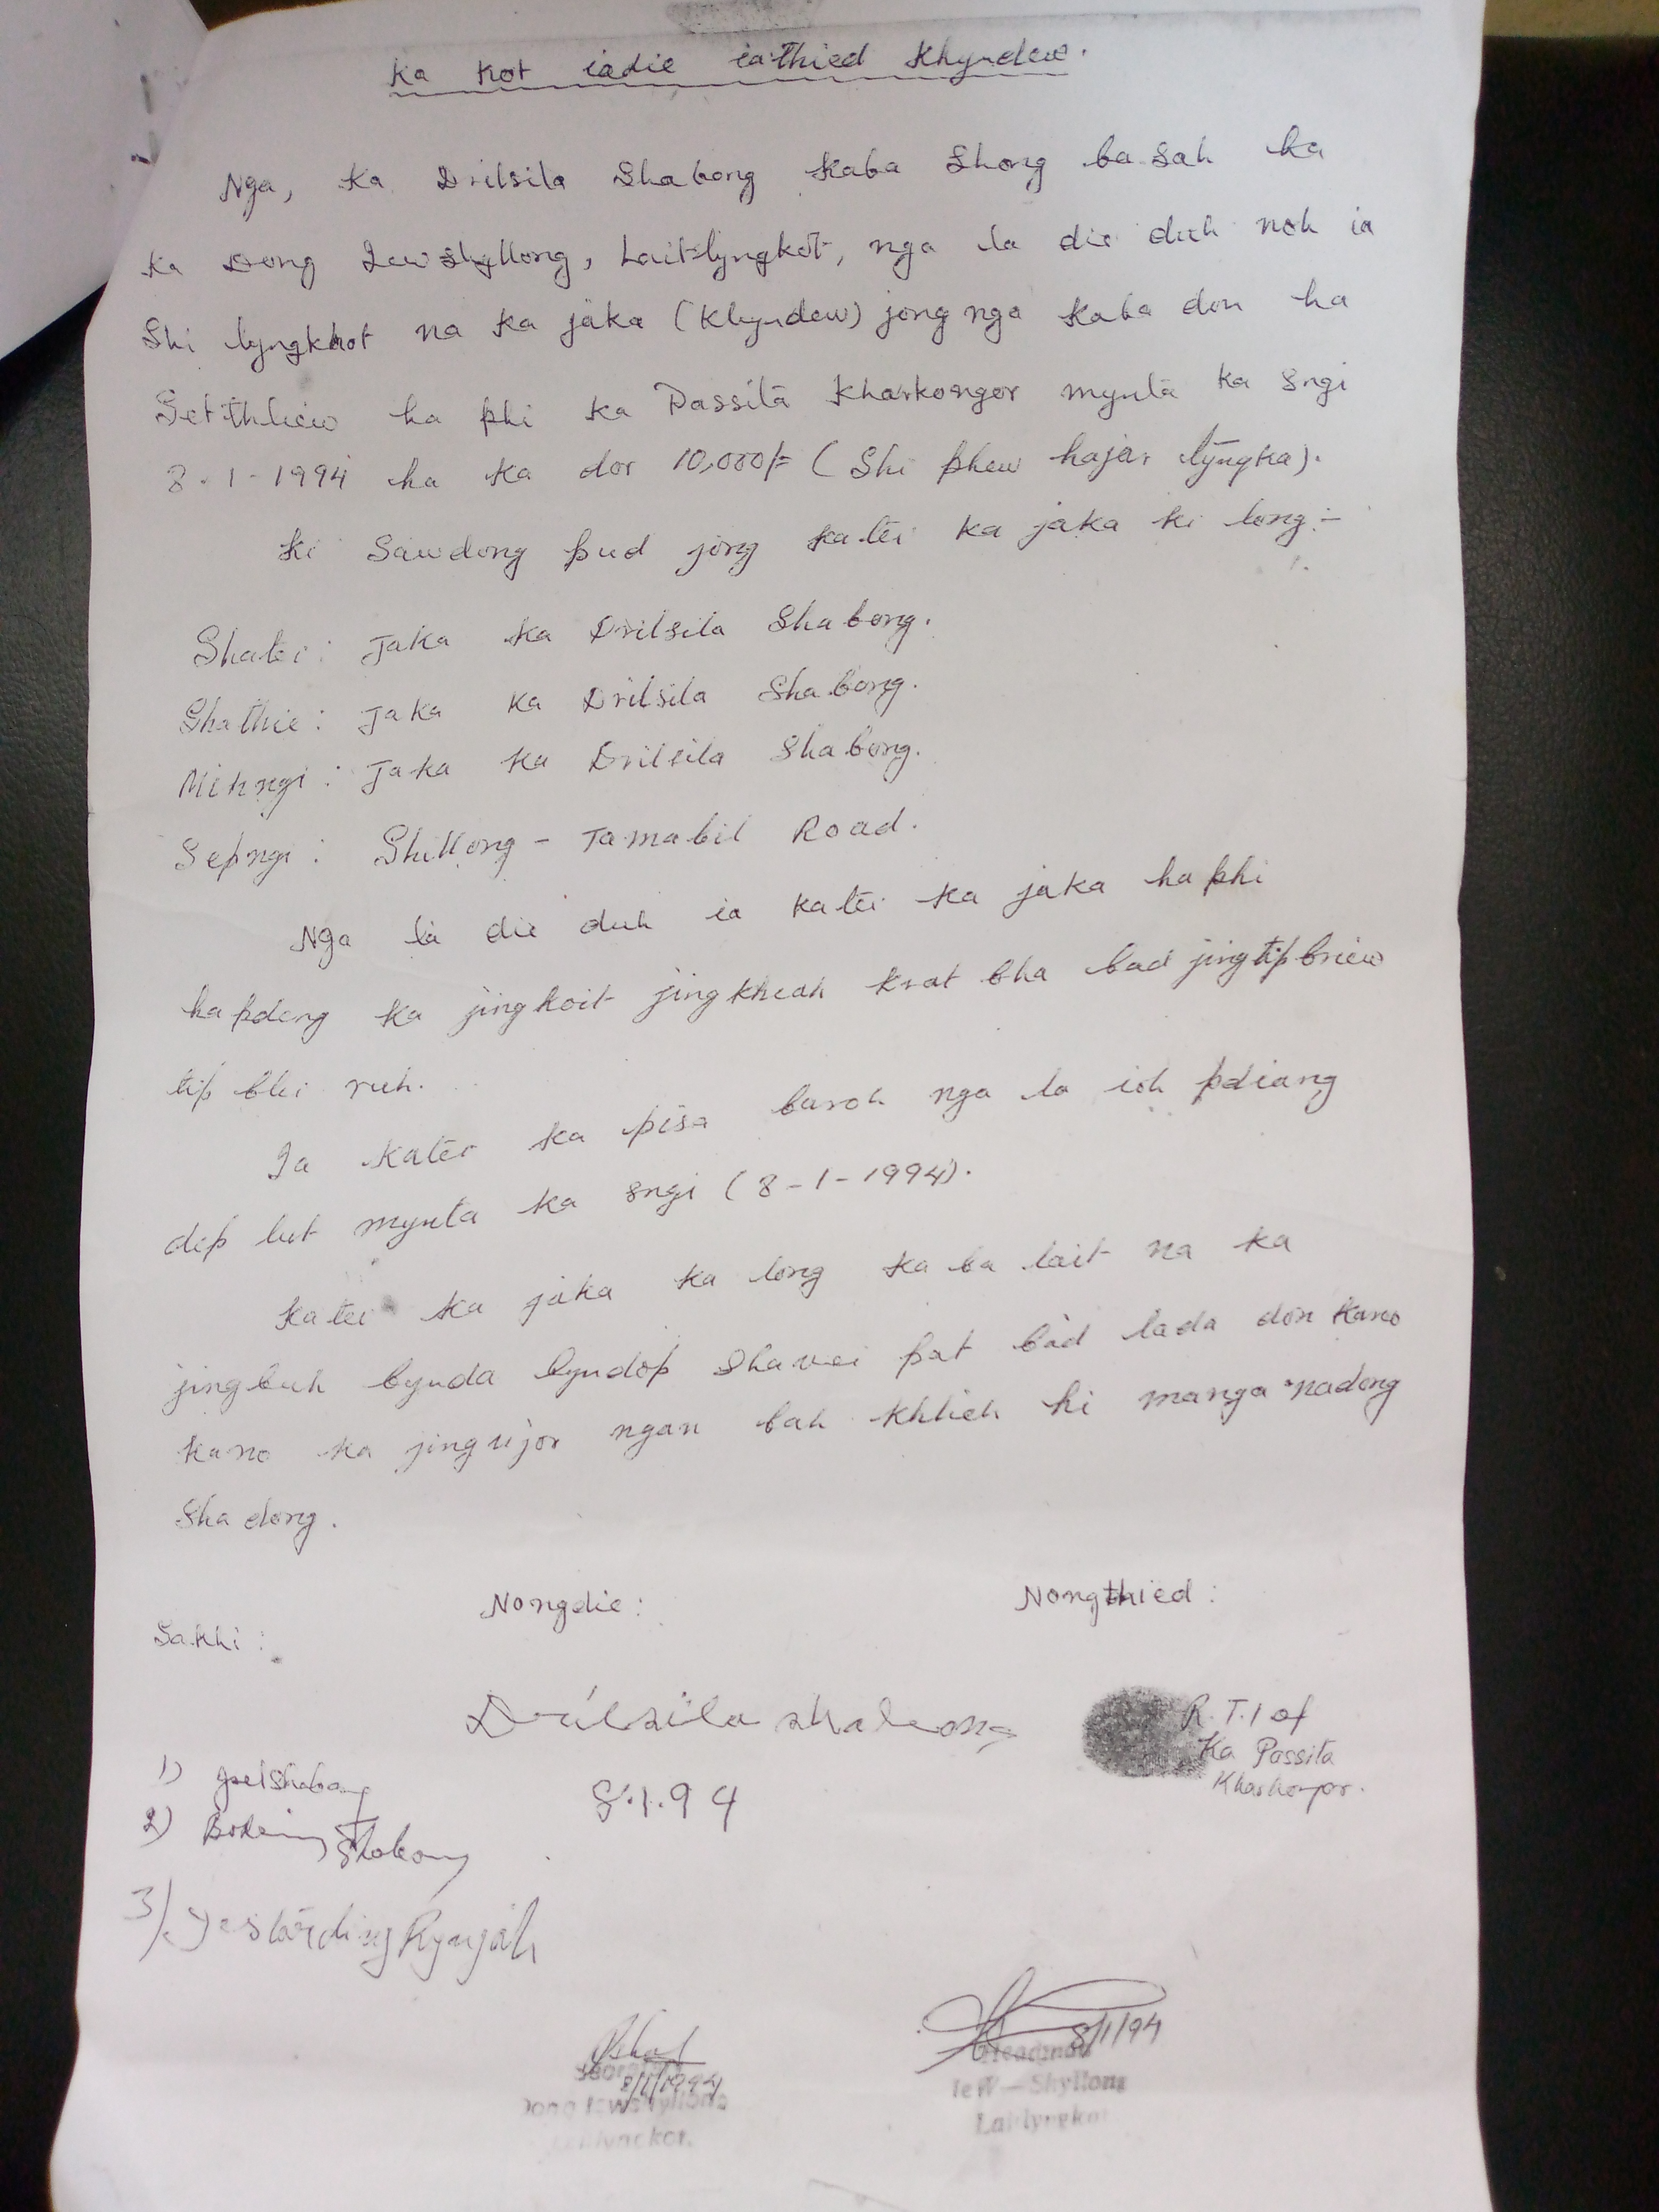 Ka Kot iadie iathied Khyndew.
Nga, Ka Drilsila Shabong kaba Shong ba sah ha
ka Dong Iewshyllong, Laitlyngkot, nga la die duh noh ia
Shi lyngkhot na ka jaka (Khyndew) jong nga kaba don ha
Setthliew ha phi ka Passita Kharkongor mynta ka sngi
8-1-1994 ha ka dor 10,000/= (Shi phew hajar lyngka).
Ki Sawdong pud jong katei ka jaka ki long:-
Shatei: Jaka ka Drilsila Shabong.
Shathie: Jaka ka Drilsila Shabong.
Mihngi: Jaka ka Drilsila Shabong.
Sepngi: Shillong - Tamabil Road.
Nga la die duh ia katei ka jaka ha phi
hapdeng ka jingkoit jingkhiah krat bha bad jingtip briew
tip blei ruh.
Ia katei ka pisa baroh nga la ioh pdiang
dep lut mynta ka sngi (8-1-1994).
Katei ka jaka ka long ka ba lait na ka
jingbuh bynda byndop shawei pat bad lada don kano
kano ka jingujor ngan bah khlieh hi manga nadong
shadong.
Nongdie: Nongthied:
Sakhi:
Drilsila shabong
R.T.I of
Ka Passita
Kharkongor.
1) Joelshabong
8.1.94
2) Shabong
3) Rynjah
8/1/94
Headman
8/1/1994
Iew-Shyllong
Dong Iewshyllong
Laitlyngkot
Laitlyngkot.